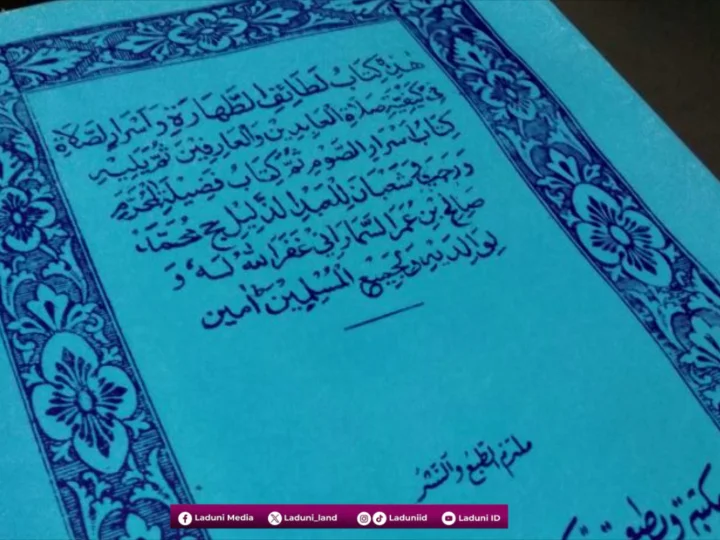 هٰذَا كِتَابُ لَطَائِفِ الطَّهَارَةِ وَأَسْرَارِ الصَّلَاةِ
فِي كَيْفِيَّةِ صَلَاةِ الْعَابِدِينَ وَالْعَارِفِينَ ثُمَّ يَلِيهِ
كِتَابُ أَسْرَارِ الصَّوْمِ ثُمَّ كِتَابُ فَضِيلَةِ الْمُحَرَّمِ
وَرَجَبَ وَشَعْبَانَ لِلْعَبْدِ الذَّلِيلِ ج مُحَمَّدْ
صَالِحْ بْنِ عُمَرَ السَّمَارَانِي غَفَرَ اللهُ لَهُ وَ
لِوَالِدَيْهِ وَلِجَمِيعِ الْمُسْلِمِينَ آمِين
ملتزم الطبع والنشر
مكتبة ومطبعة
Laduni Media Laduni_land Laduniid Laduni ID